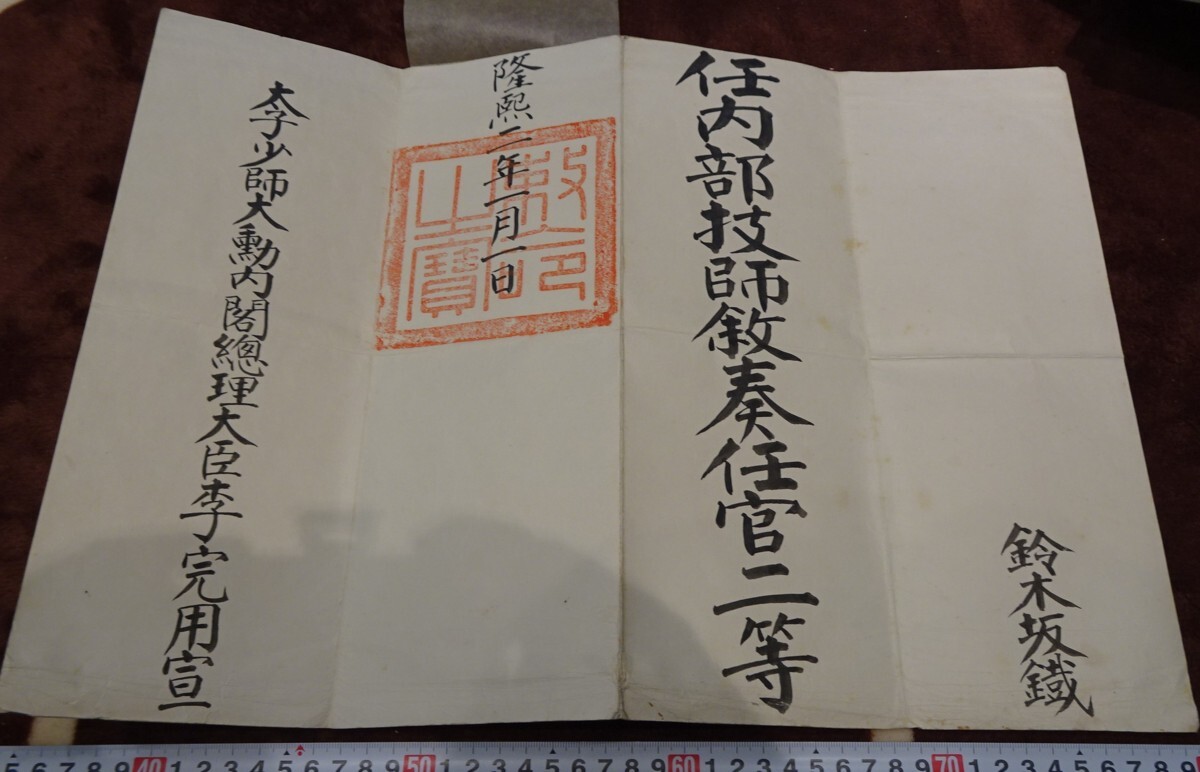 鈴木坂鐵
任內部技師敘奏任官二等
隆熙二年一月一日
敕命之寶
太子少師大勳內閣總理大臣李完用宣
5 6 7 8 9 40 1 2 3 4 5 6 7 8 9 50 1 2 3 4 5 6 7 8 9 60 1 2 3 4 5 6 7 8 9 70 1 2 3 4 5 6 7 8 9